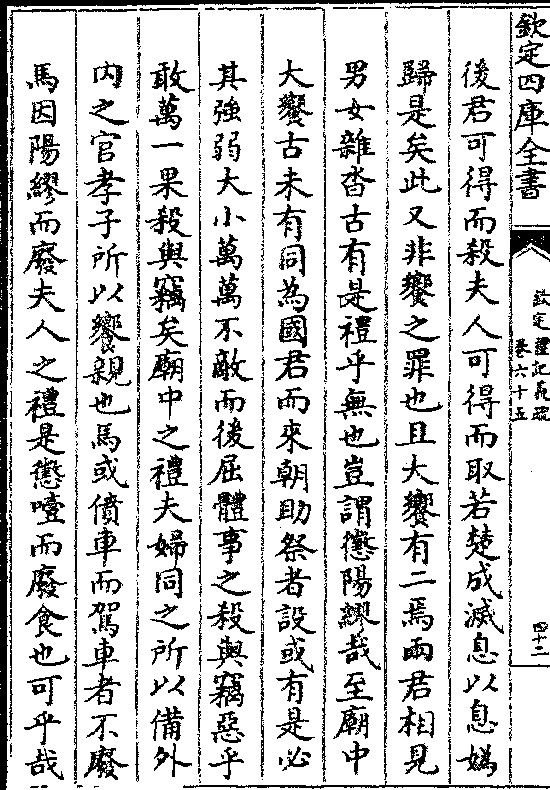 欽定四庫全書
欽定禮記義疏
卷六十五
四十二
後君可得而殺夫人可得而取若楚成滅息以息媯
歸是矣此又非饗之罪也且大饗有二焉兩君相見
男女雜沓古有是禮乎無也豈謂懲陽繆哉至廟中
大饗古未有同為國君而來朝助祭者設或有是必
其強弱大小萬萬不敵而後屈體事之殺與竊惡乎
敢萬一果殺與竊矣廟中之禮夫婦同之所以備外
内之官孝子所以饗親也馬或僨車而駕車者不廢
馬因陽繆而廢夫人之禮是懲噎而廢食也可乎哉